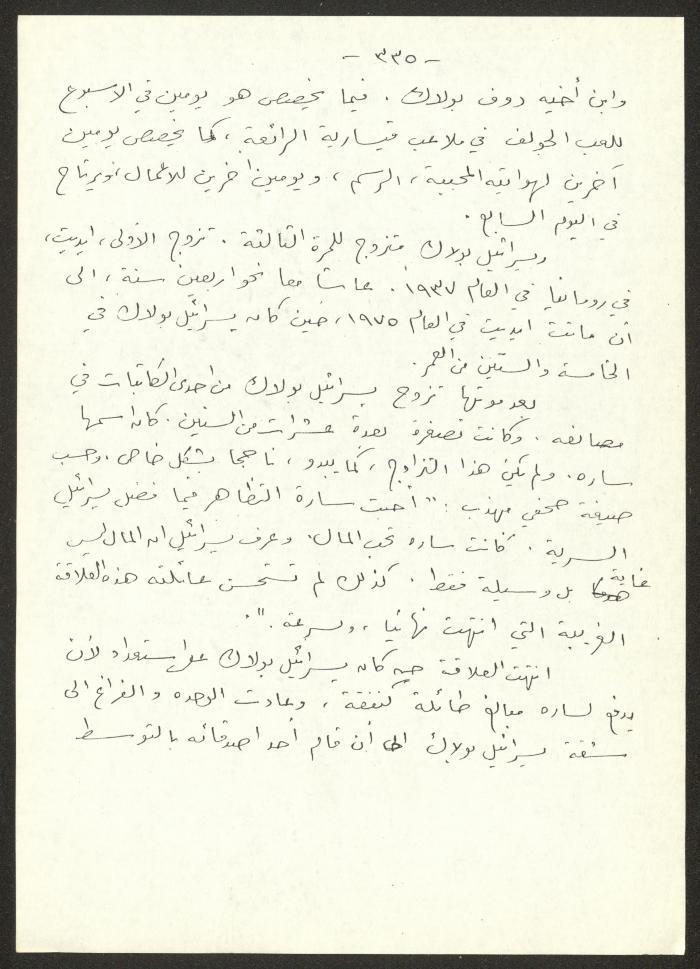 - ٣٣٥ -
وابن أخيه دوف بولاك . فيما يخصص هو يومين في الاسبوع
للعب الجولف في ملاعب قيسارية الرائعة ، كما يخصص يومين
آخرين لهوايته المحببة ، الرسم ، ويومين اخرين للاعمال ، ويرتاح
في اليوم السابع .
ويسرائيل بولاك متزوج للمرة الثالثة . تزوج الاولى ، ايديت ،
في رومانيا في العام ١٩٣٧ . عاشا معا نحو اربعين سنة ، الى
أن ماتت ايديت في العام ١٩٧٥ ، حين كان يسرائيل بولاك في
الخامسة والستين من العمر .
بعد موتها تزوج يسرائيل بولاك من احدى الكاتبات في
مصانعه . وكانت تصغره بعدة عشرات من السنين . كان اسمها
ساره . ولم يكن هذا التزاوج ، كما يبدو ، ناجحا بشكل خاص . وحسب
صيغة صحفي مهذب : " أحبت سارة التظاهر فيما فضل يسرائيل
السرية . كانت ساره تحب المال . وعرف يسرائيل ان المال ليس
غاية بل وسيلة فقط . كذلك لم تستحسن عائلته هذه العلاقة
الغريبة التي انتهت نهائيا ، وبسرعة . " .
انتهت العلاقة حين كان يسرائيل بولاك على استعداد لأن
يدفع لساره مبالغ طائلة كنفقة ، وعادت الوحده والفراغ الى
شقة يسرائيل بولاك الى أن قام أحد اصدقائه بالتوسط